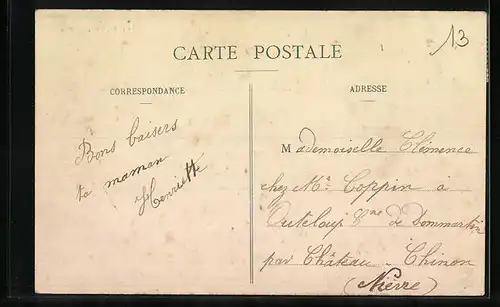 13
CARTE POSTALE
CORRESPONDANCE
Bons baisers
ta maman
Henriette
ADRESSE
Mademoiselle Clémence
chez Mr Coppin à
Outeloup Cne de Dommartin
par Château-Chinon
(Nièvre)